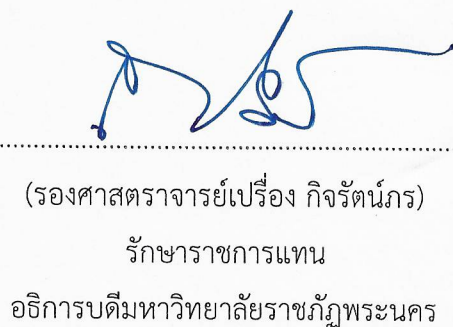 (รองศาสตราจารย์เปรื่อง กิจรัตน์ภร)
รักษาราชการแทน
อธิการบดีมหาวิทยาลัยราชภัฏพระนคร